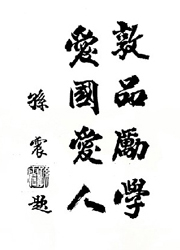 敦品勵學
愛國愛人
孫震題